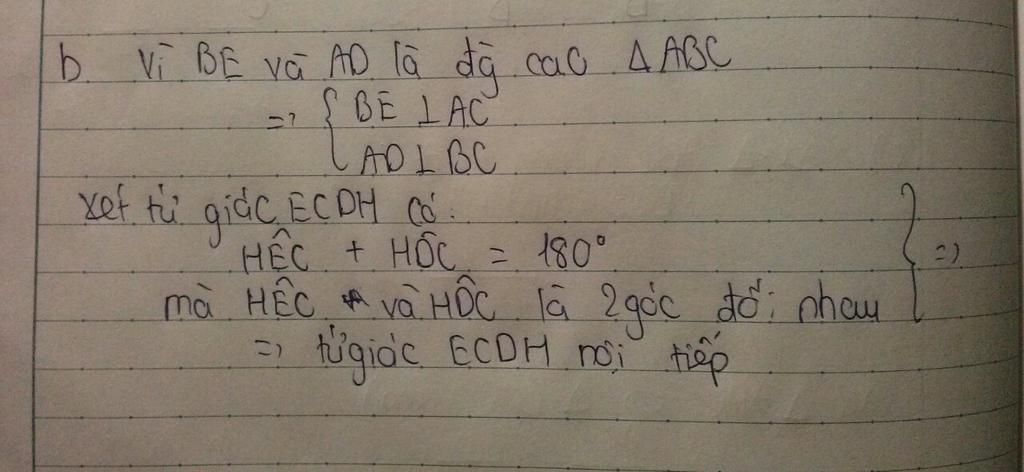 b. Vì BE và AD là đg cao Δ ABC
=> { BE ⊥ AC
AD ⊥ BC
xét tứ giác ECDH có:
HÊC + HD̂C = 180° } =>
mà HÊC và HD̂C là 2 góc đối nhau
=> tứ giác ECDH nội tiếp